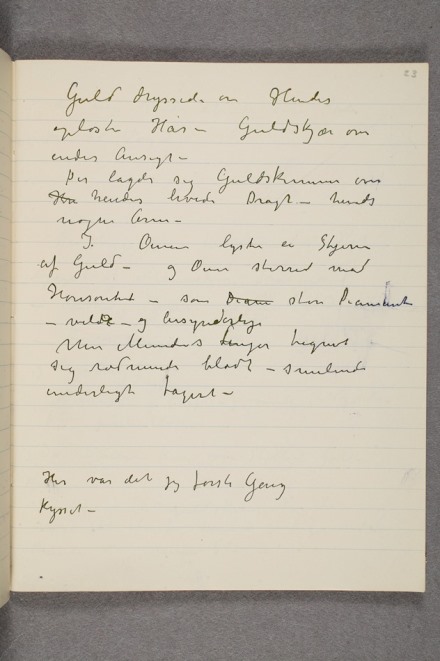 23
Guld dryssede om Hendes
opløste Hår – Guldskjær om
endes Ansigt –
Der lagde sig Guldskimmer om
hendes hvide Dragt – hends
nøgne Arm –
I. Ømen lyste en Stjerne
af Guld – og Ømen stirred mod
Horisonted – som store Diamanter
– velde – og
Men Mundens Linjer bøjned
seg rødmende blødt – smilende
underligt bøjed –
Her var det jeg første Gang
kysset –